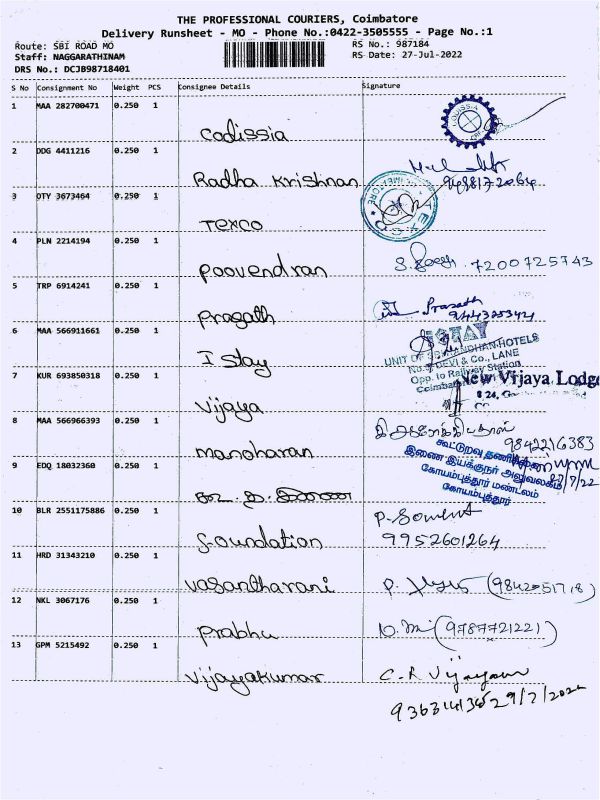 THE PROFESSIONAL COURIERS, Coimbatore
Delivery Runsheet - MO - Phone No.:0422-3505555 - Page No.:1
Route: SBI ROAD MO RS No.: 987184
Staff: NAGGARATHINAM RS Date: 27-Jul-2022
DRS No.: DCJB98718401
S No Consignment No Weight PCS Consignee Details Signature
1 MAA 282700471 0.250 1
codissia CODISSIA
2 DDG 4411216 0.250 1
Radha Krishnan 9498172064
3 OTY 3673464 0.250 1
Texco TEXCO
4 PLN 2214194 0.250 1
poovendran 7200725743
5 TRP 6914241 0.250 1
pragath Prasath
6 MAA 566911661 0.250 1
I stay ISTAY
UNIT OF HOTELS
DEVI & Co., LANE
Opp. to Railway Station
7 KUR 693850318 0.250 1 New Vijaya Lodge
vijaya
8 MAA 566966393 0.250 1
manoharan 9842216383
9 EDQ 18032360 0.250 1 கூட்டுறவு
இணை இயக்குநர் அலுவலகம்
கோயம்புத்தூர் மண்டலம்
கோயம்புத்தூர்
10 BLR 2551175886 0.250 1
foundation 9952601264
11 HRD 31343210 0.250 1
vasantharani P.
12 NKL 3067176 0.250 1
prabhu (9787721221)
13 GPM 5215492 0.250 1
vijayakumar C.R